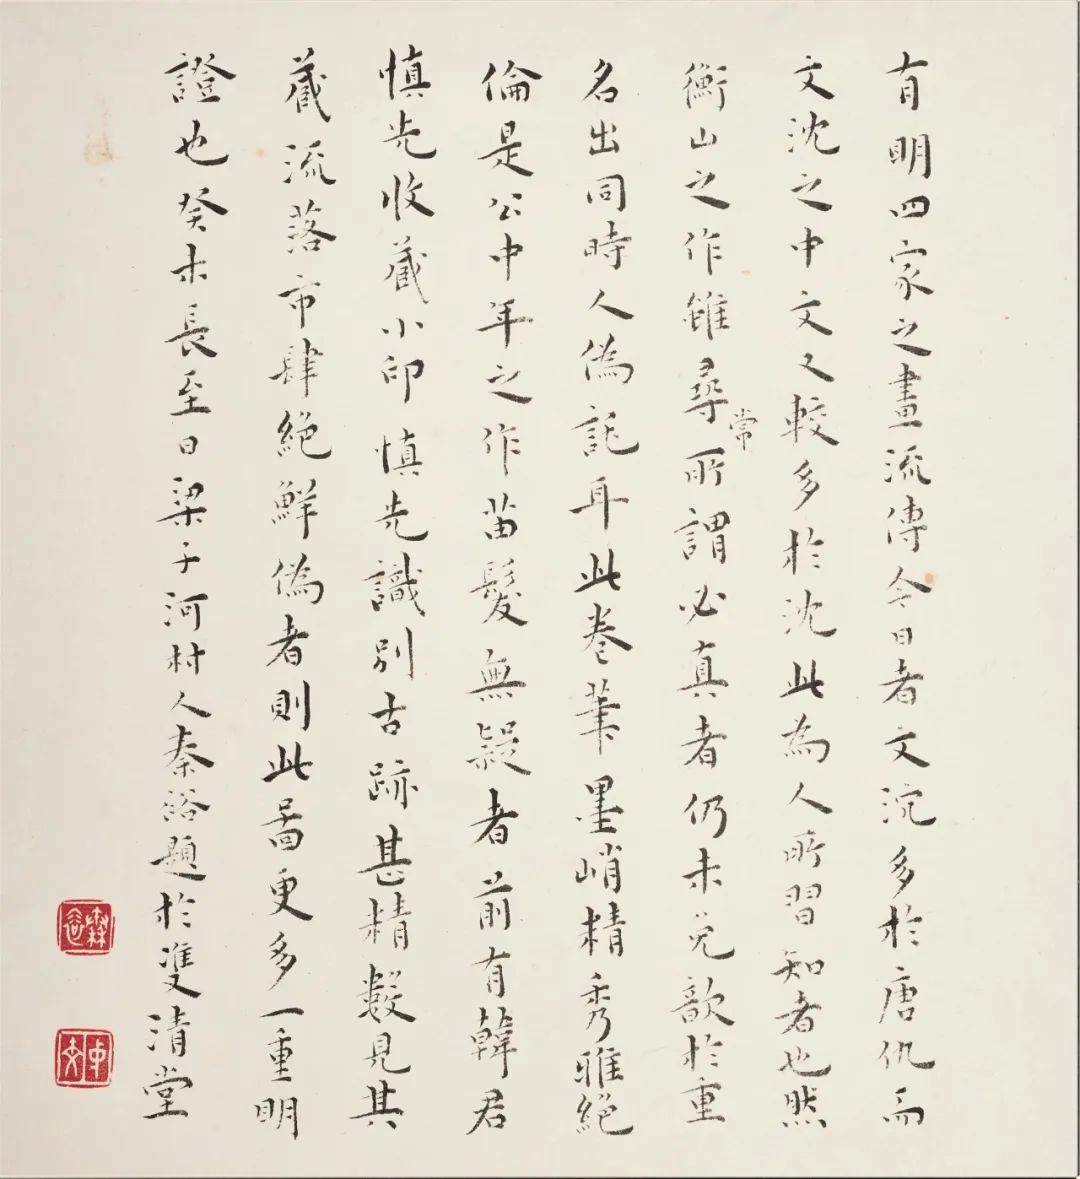 有明四家之畫流傳今日者文沈多於唐仇而
文沈之中文又較多於沈此為人所習知者也然
衡山之作雖尋常所謂必真者仍未免歆於重
名出同時人偽託耳此卷筆墨峭精秀雅絕
倫是公中年之作苗髮無疑者前有韓君
慎先收藏小印慎先識別古跡甚精數見其
藏流落市肆絕鮮偽者則此圖更多一重明
證也癸未長至日梁子河村人秦裕題於雙清堂